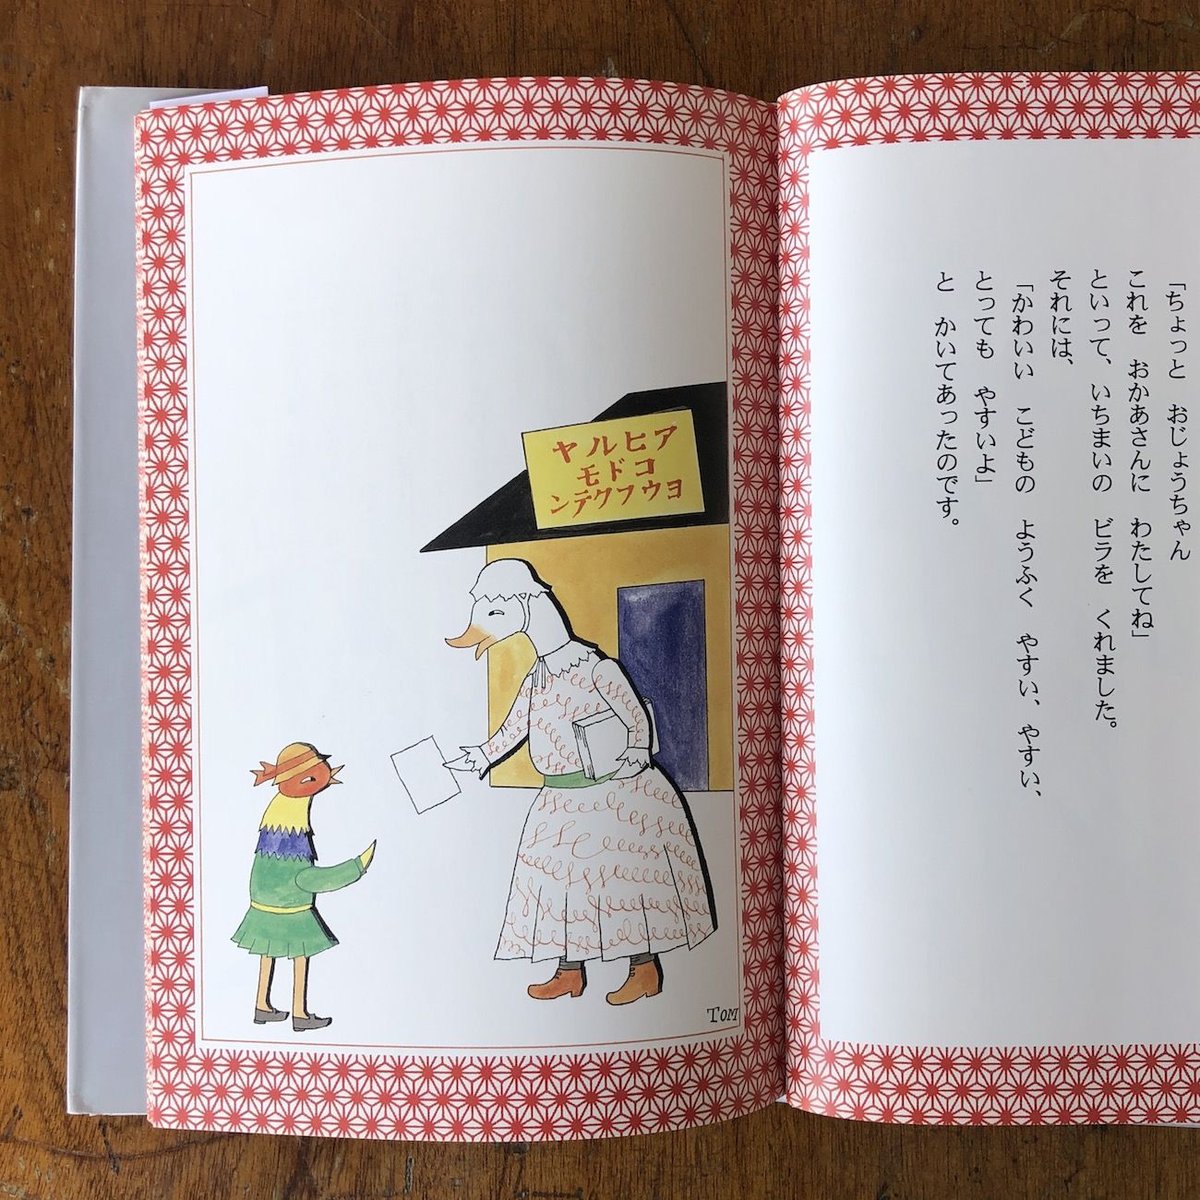 「ちょっと　おじょうちゃん
これを　おかあさんに　わたしてね」
といって、いちまいの　ビラを　くれました。
それには、
「かわいい　こどもの　ようふく　やすい、やすい、
とっても　やすいよ」
と　かいてあったのです。
アヒルヤ
コドモ
ヨウフクテン
TOM